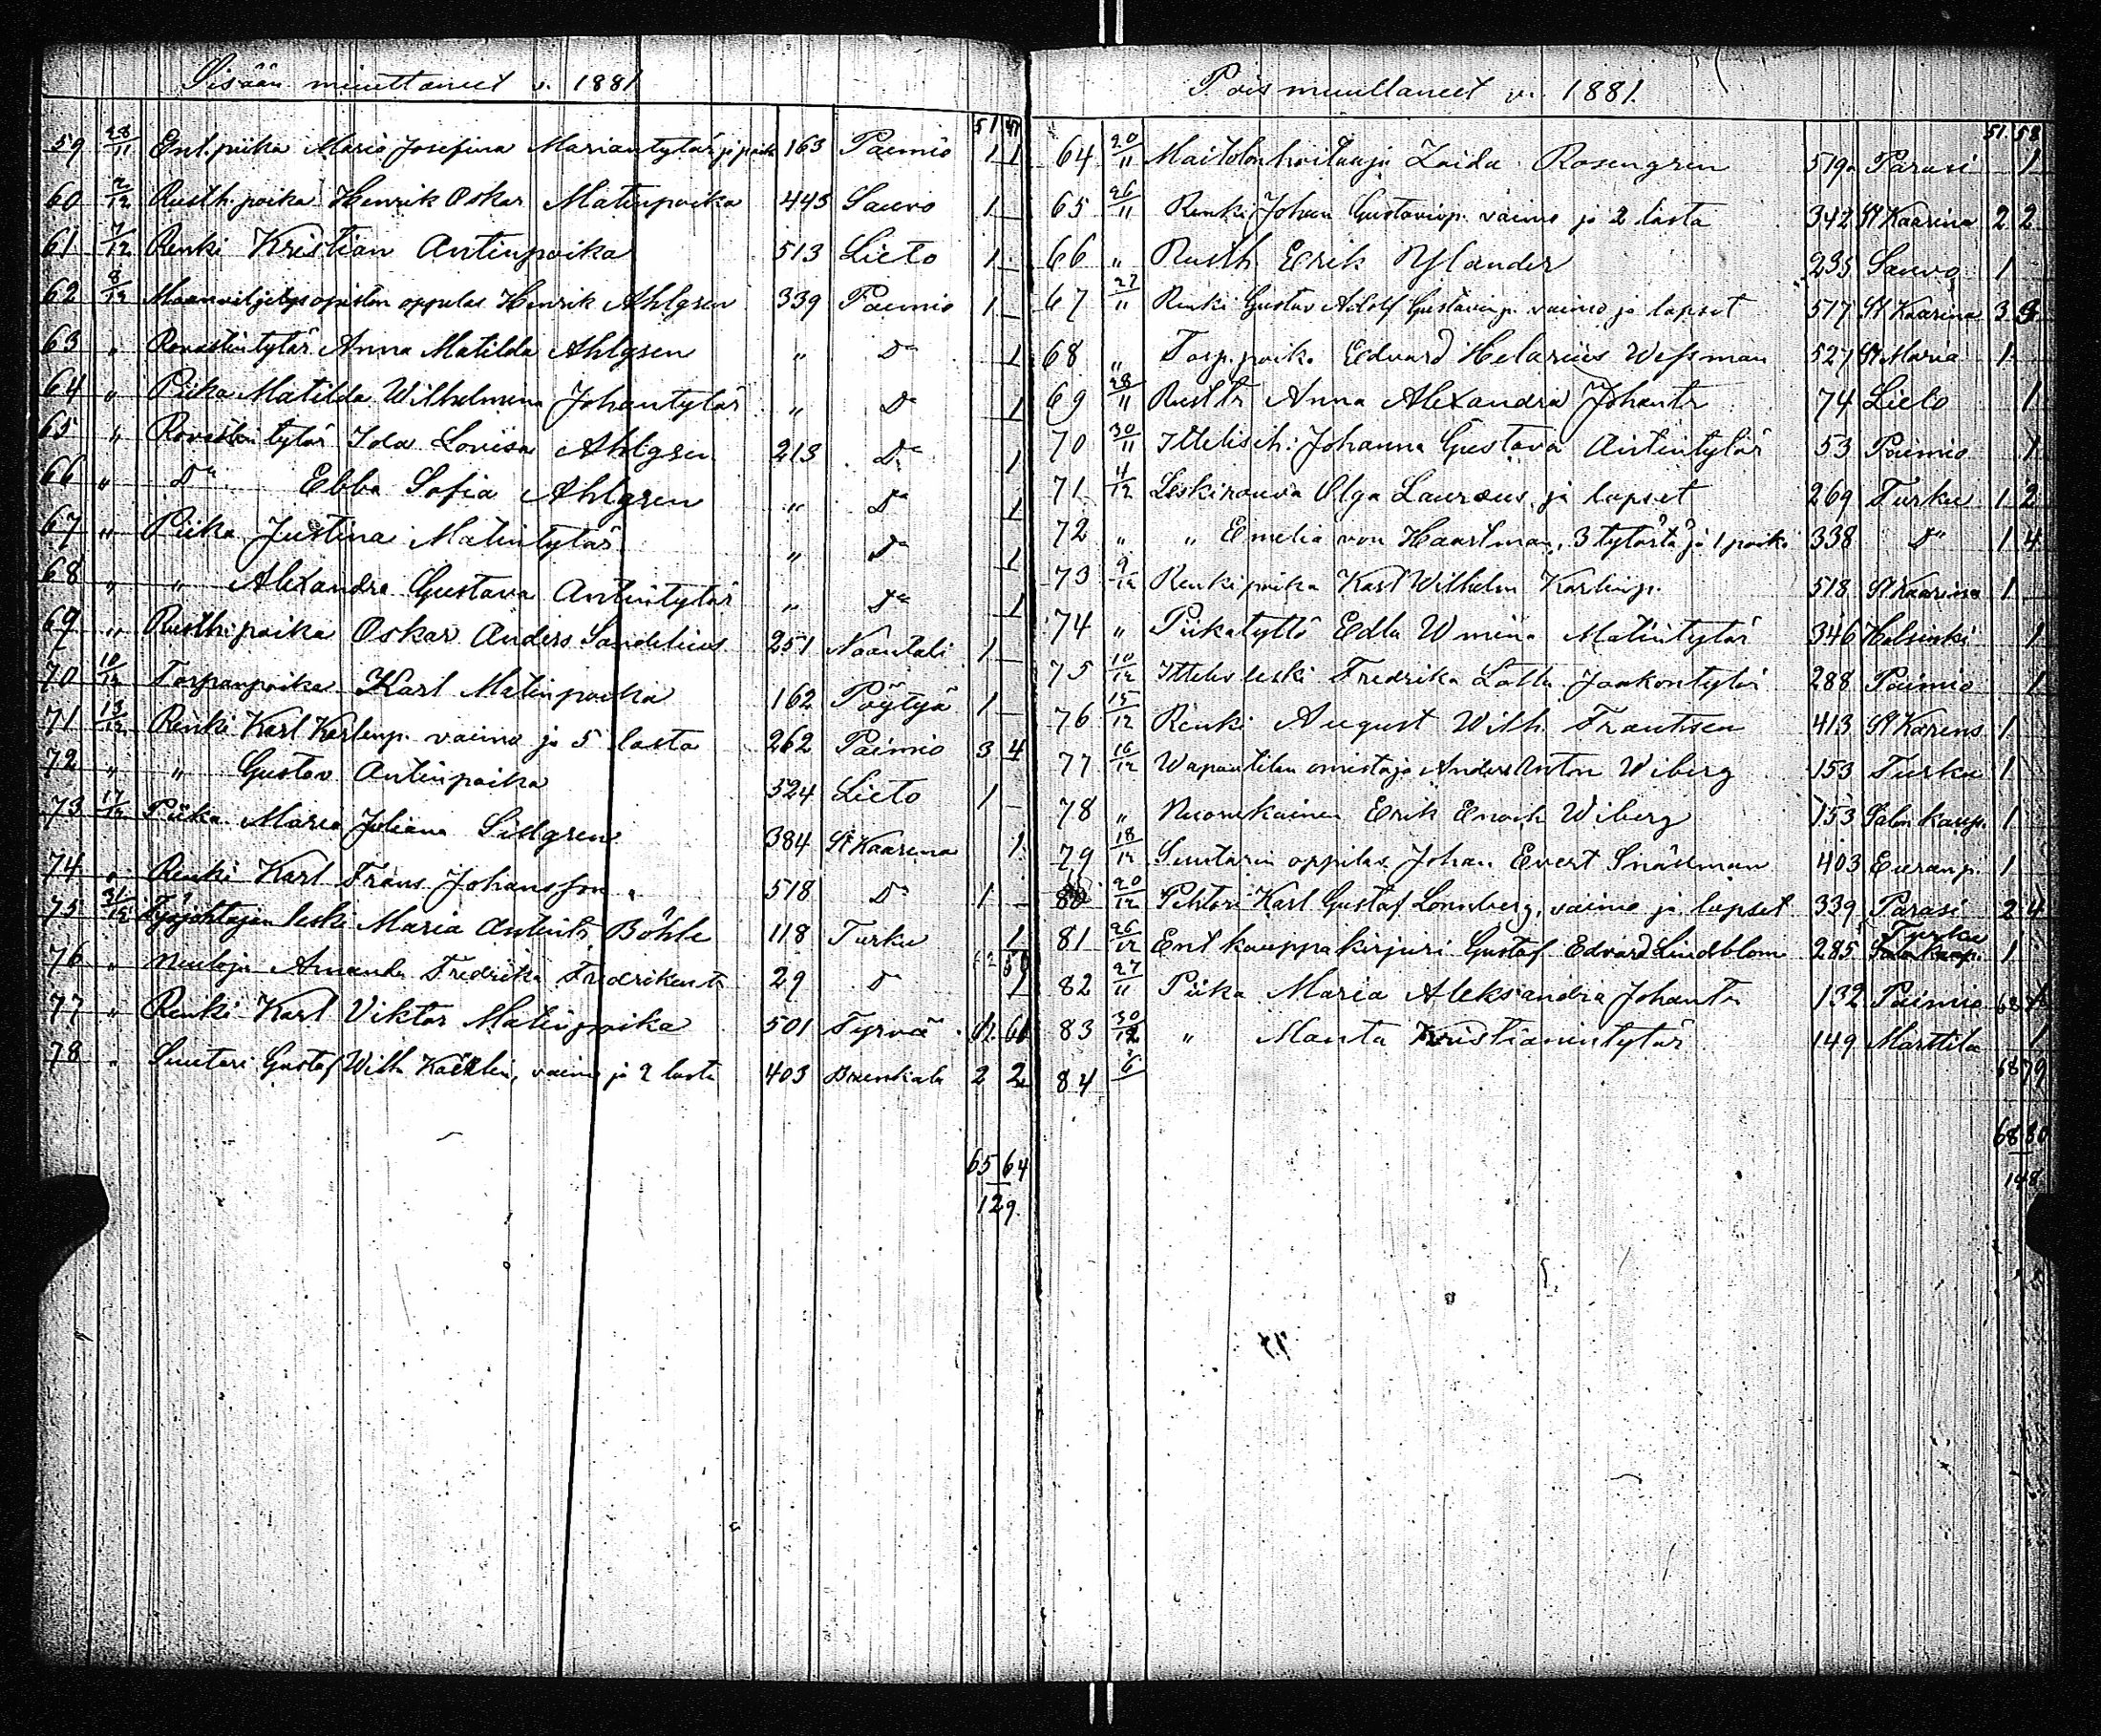 Sisään muuttaneet v. 1881
51 47
59 28/11 Ent. piika Maria Josefina Mariantytär ja poika 163 Paimio 1 1
60 2/12 Rusth. poika Henrik Oskar Matinpoika 445 Sauvo 1 –
61 7/12 Renki Kristian Antinpoika 513 Lieto 1 –
62 8/12 Maanviljelys opiston oppilas Henrik Ahlgren 339 Paimio 1 –
63 " Rovastin tytär Anna Matilda Ahlgren " Do 1
64 " Piika Matilda Wilhelmina Johantytär " Do 1
65 " Rovastin tytär Ida Lovisa Ahlgren 213 Do 1
66 " Do Ebba Sofia Ahlgren " Do 1
67 " Piika Justina Matintytär " Do 1
68 " " Alexandra Gustava Antintytär " Do 1
69 " Rusth. poika Oskar Anders Sandelius 251 Naantali 1 –
70 10/12 Torpanpoika Karl Matinpoika 162 Pöytyä 1 –
71 13/12 Renki Karl Karlinp. vaimo ja 5 lasta 262 Paimio 3 4
72 " " Gustav Antinpoika 324 Lieto 1 –
73 17/12 Piika Maria Juliana Sidgren 384 St Kaarina 1
74 " Renki Karl Frans Johansson 518 Do 1 –
75 31/12 Työjohtajan leski Maria Antint. Böhle 118 Turku 1
76 " Neuloja Amanda Fredrika Fredrikent. 29 Do 1
77 " Renki Karl Viktor Matinpoika 501 Tyrvää 1
78 " Suutari Gustaf Wilh. , vaimo ja 2 lasta 403 2 2
65 64
129.
Pois muuttaneet v. 1881.
51 58
64 20/11 Maitolon hoitaaja Zaida Rosengren 519a Parasi 1
65 26/11 Renki Johan Gustavinp. vaimo ja 2 lasta 342 St Kaarina 2 2
66 " Rusth. Erik Nylander 235 Sauvo 1
67 27/11 Renki Gustav Adolf Gustavinp. vaimo ja lapset 517 St Kaarina 3 3
68 " Torp. poika Edvard Helarius Wessman 527 St Maria 1
69 28/11 Rustt. Anna Alexandra Johantr 74 Lieto 1
70 30/11 Ittelisch: Johanna Gustava Antintytär 53 Paimio 1
71 4/12 Leskirouva Olga Lauræus ja lapset 269 Turku 1 2
72 " " Emelia von Haartman, 3 tytärtä ja 1 poika 338 Do 1 4
73 9/12 Renkipoika Karl Wilhelm Karlinp. 518 St Kaarina 1
74 " Piikatyttö Edla Wmina Matintytär 346 Helsinki 1
75 10/12 Ittelis leski Fredrika Lotta Jaakontytär 288 Paimio 1
76 15/12 Renki August Wilh. Frantsen 413 St Karens 1
77 16/12 Wapautilan omistaja Anders Anton Wiberg 153 Turku 1
78 " Nuorukainen Erik Enock Wiberg 153 Salon kaup. 1
79 18/12 Suutarin oppilas Johan Evert Snällman 403 Euranp. 1
80 20/12 Pehtori Karl Gustaf Lönnberg, vaimo ja lapset 339 Parasi 2 4
81 26/12 Ent kauppakirjuri Gustaf Edvard Lindblom 285 Turku 1
82 27/11 Piika Maria Aleksandra Johantr 132 Paimio
83 30/12 " Manta Kristianintytär 149 Marttila 1
84
68 79
68 80
148